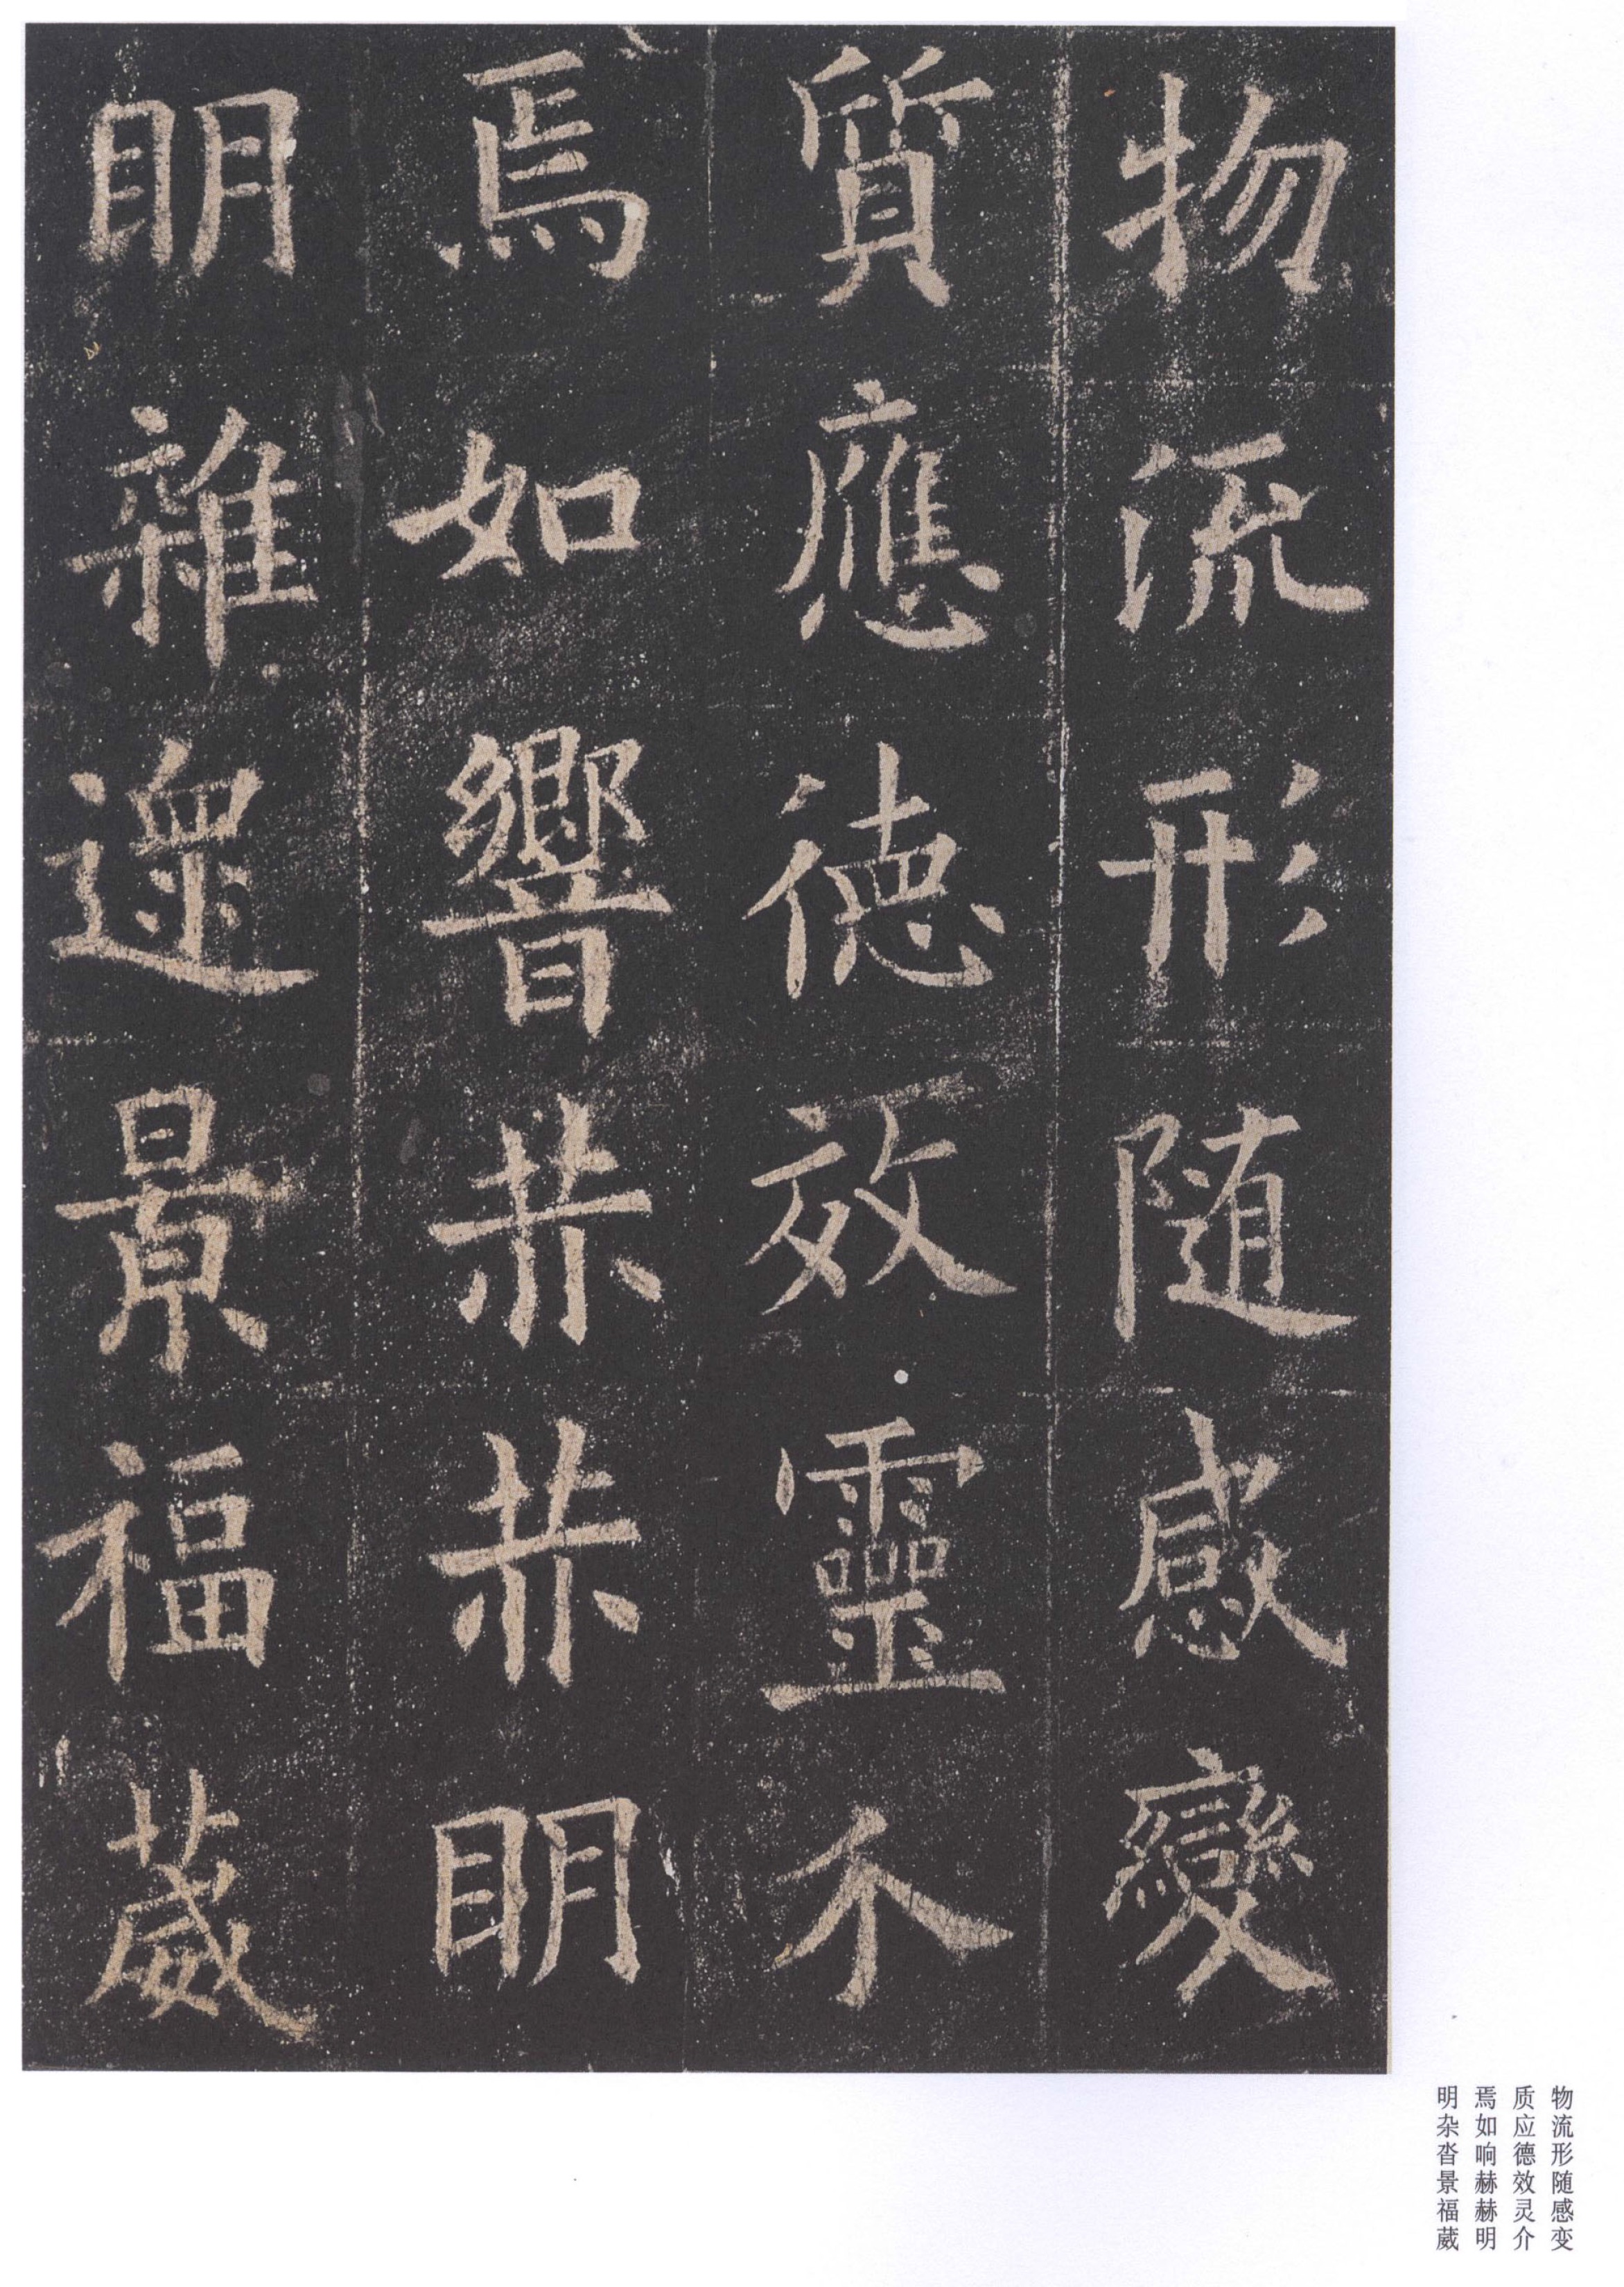 物流形随感變
質應德效靈介
焉如響赫赫明
明雜遝景福葳
物流形随感变
质应德效灵介
焉如响赫赫明
明杂沓景福葳